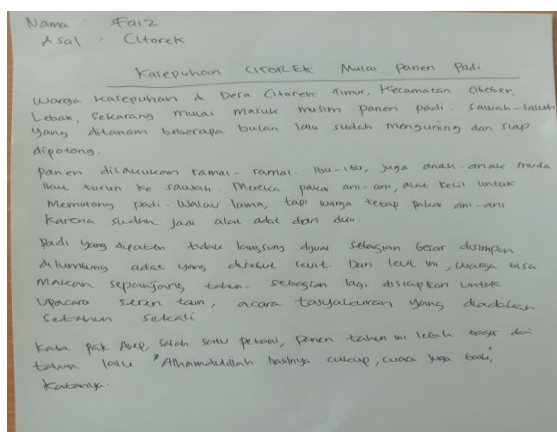 Nama : Faiz
Asal : Citorek
Kasepuhan CITOREK Mulai Panen Padi
Warga Kasepuhan di Desa Citorek Timur, Kecamatan Cibeber,
Lebak, Sekarang mulai masuk musim panen padi. Sawah-sawah
yang ditanam beberapa bulan lalu sudah menguning dan siap
dipotong.
Panen dilakukan ramai-ramai. Ibu-ibu, juga anak-anak muda
ikut turun ke sawah. Mereka pakai ani-ani, alat kecil untuk
memotong padi. Walau lama, tapi warga tetap pakai ani-ani
karena sudah jadi alat adat dari dulu.
Padi yang dipanen tidak langsung dijual sebagian besar disimpan
dilumbung adat yang disebut leuit. Dari leuit ini, warga bisa
makan sepanjang tahun. Sebagian lagi disiapkan untuk
upacara seren taun, acara tasyakuran yang diadakan
setahun sekali
Kata pak Asep, salah satu petani, panen tahun ini lebih bagus dari
tahun lalu "Alhamdulillah hasilnya cukup, cuaca juga baik,
katanya.